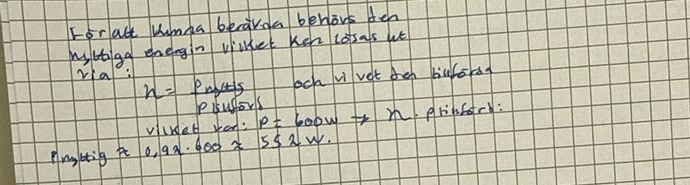 För att kunna beräkna behövs den
nyttiga energin vilket kan lösas ut
via:
n = Pnyttig och vi vet den tillförda
Ptillförd
vilket var: P = 600W → n · Ptillförd:
Pnyttig ≈ 0,92 · 600 ≈ 552 W.